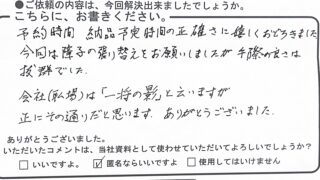 ●ご依頼の内容は、今回解決出来ましたでしょうか。
こちらに、お書きください。
予約時間 納品予定時間の正確さに嬉しくおどろきました
今回は障子の張り替えをお願いしましたが手際の良さは
抜群でした。
会社(職場)は「一将の影」と云いますが
正にその通りだと思います。ありがとうございました。
ありがとうございました。
いただいたコメントは、当社資料として使わせていただいてよろしいでしょうか？
□いいですよ。 ☑匿名ならいいですよ □使用してはいけません